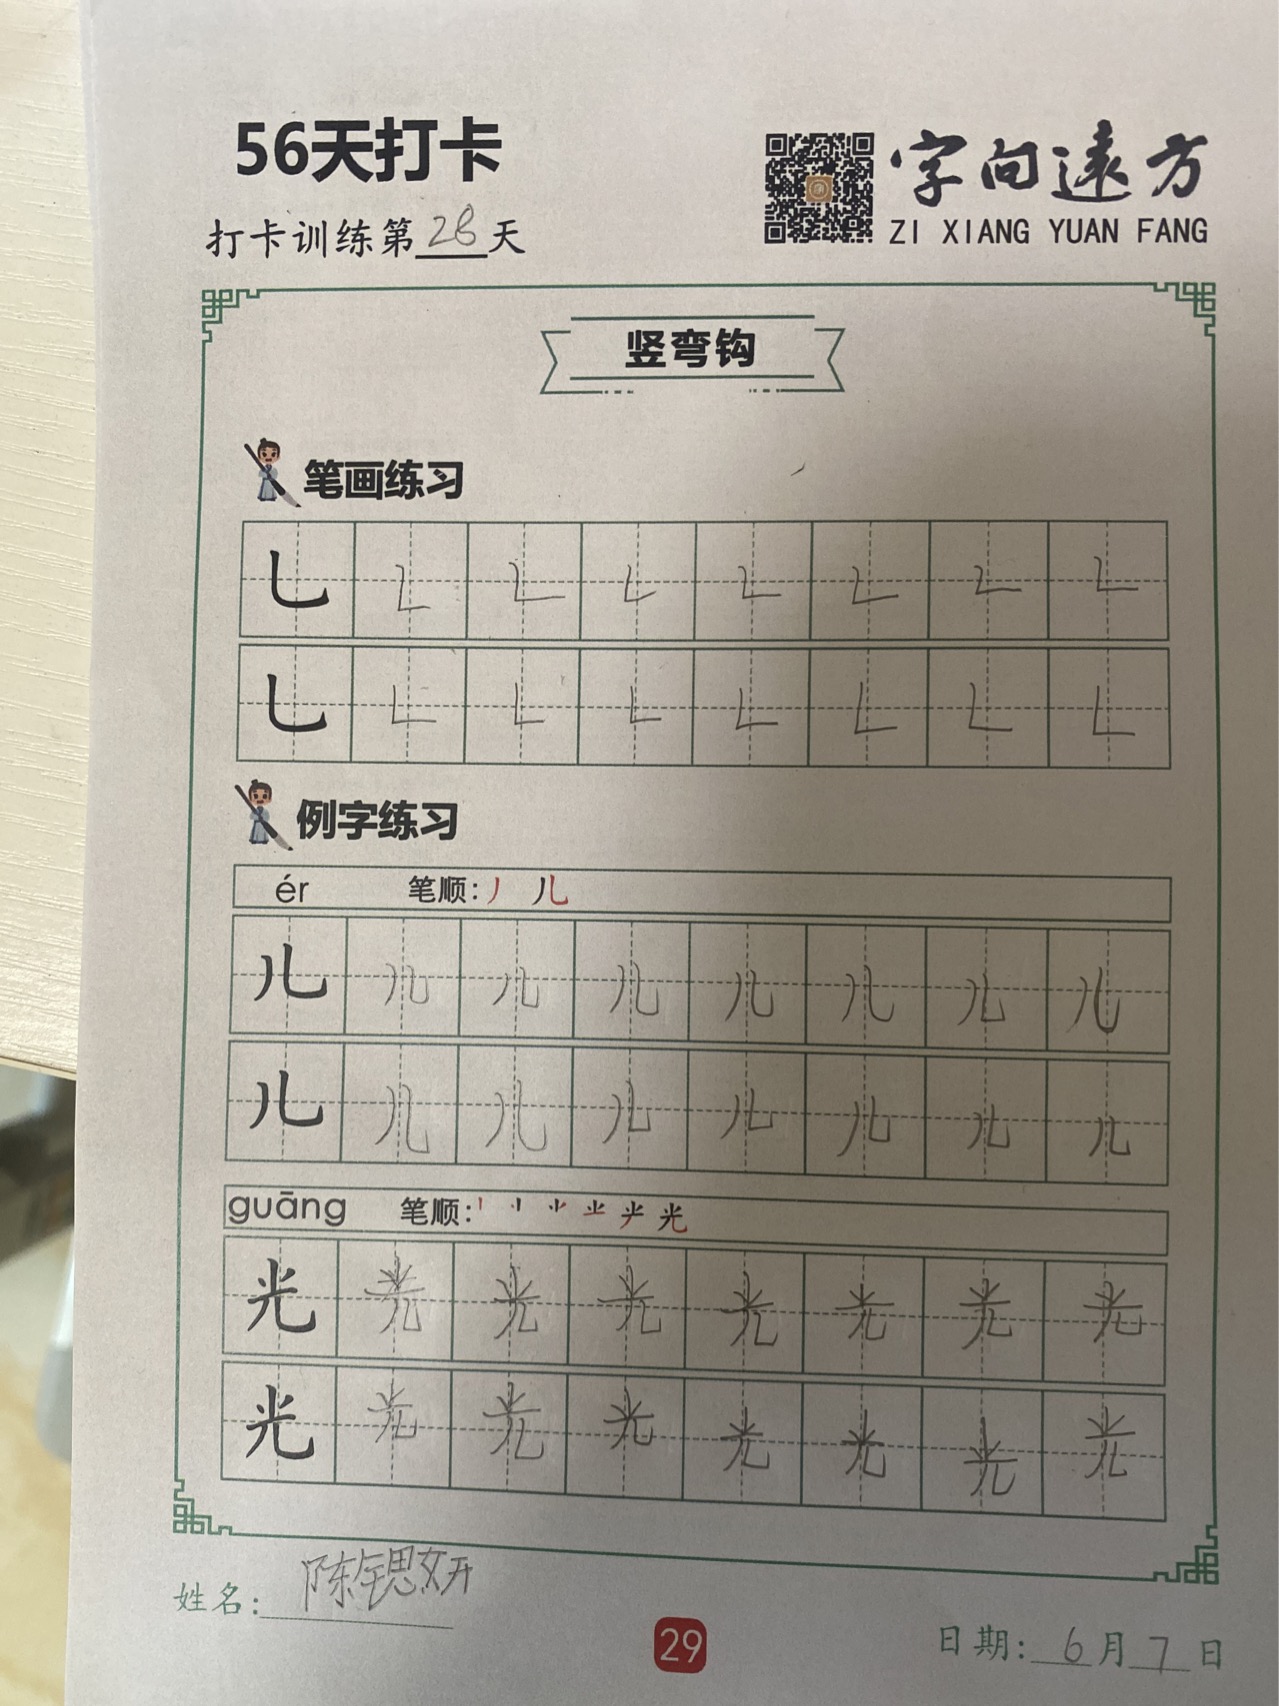 56天打卡
字向遠方
打卡训练第28天
ZI XIANG YUAN FANG
竖弯钩
笔画练习
乚 乚 乚 乚 乚 乚 乚 乚
乚 乚 乚 乚 乚 乚 乚 乚
例字练习
ér 笔顺: 丿 儿
儿 儿 儿 儿 儿 儿 儿 儿
儿 儿 儿 儿 儿 儿 儿 儿
guāng 笔顺: 光
光 光 光 光 光 光 光 光
光 光 光 光 光 光 光 光
姓名: 陈锶妍
29
日期: 6月7日